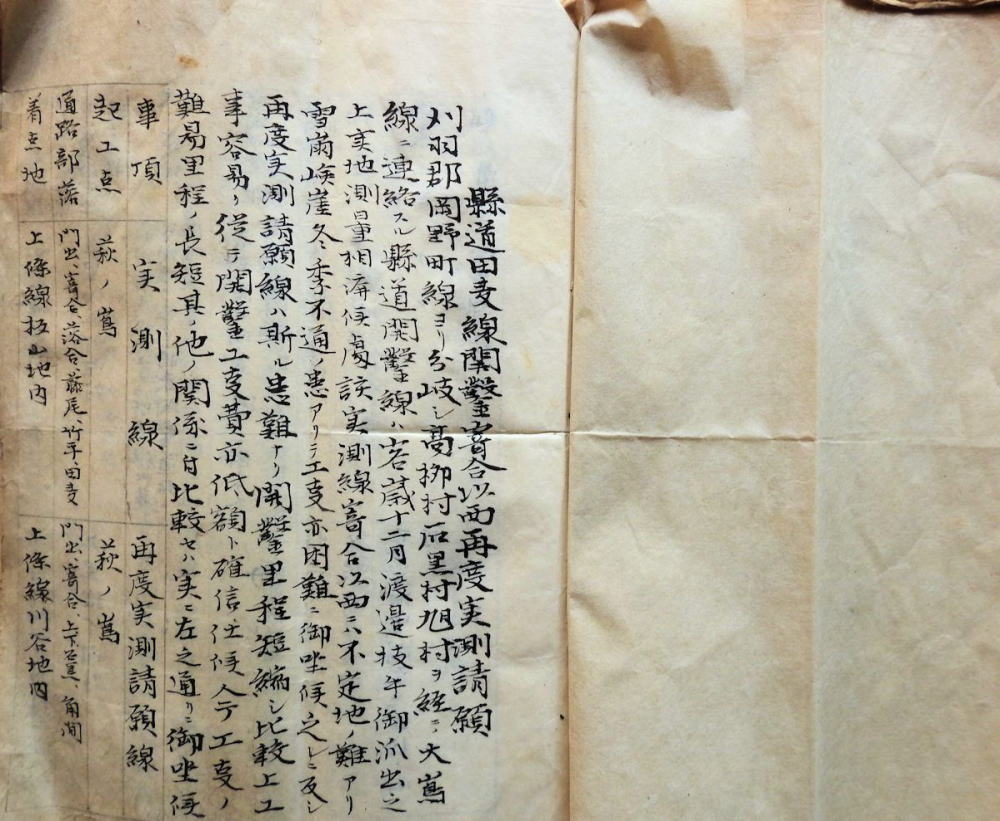 縣道田麦線開鑿寄合以西再度実測請願
刈羽郡岡野町線ヨリ分岐シ高柳村石黒村旭村ヲ経テ大嶌
線ニ連絡スル縣道開鑿線ハ客歳十二月渡邉技手御派出之
上実地測量相済候處該実測線寄合以西ハ不定地ノ難アリ
雪崩峻崖冬季不通ノ患アリテ工事亦困難ニ御坐候之レニ反シ
再度実測請願線ハ斯ル患難ナク開鑿里程短縮シ比較上工
事容易ク従テ開鑿工事費亦低額ト確信仕候今テ工事ノ
難易里程ノ長短其ノ他ノ関係ニ付比較セハ実ニ左之通リニ御坐候
事項 実測線 再度実測請願線
起工点 萩ノ嶌 萩ノ嶌
通路部落 門出、寄合、落合、藤尾、竹平、田麦 門出、寄合、上下石黒、角間
着点地 上條線 山地内 上條線川谷地内